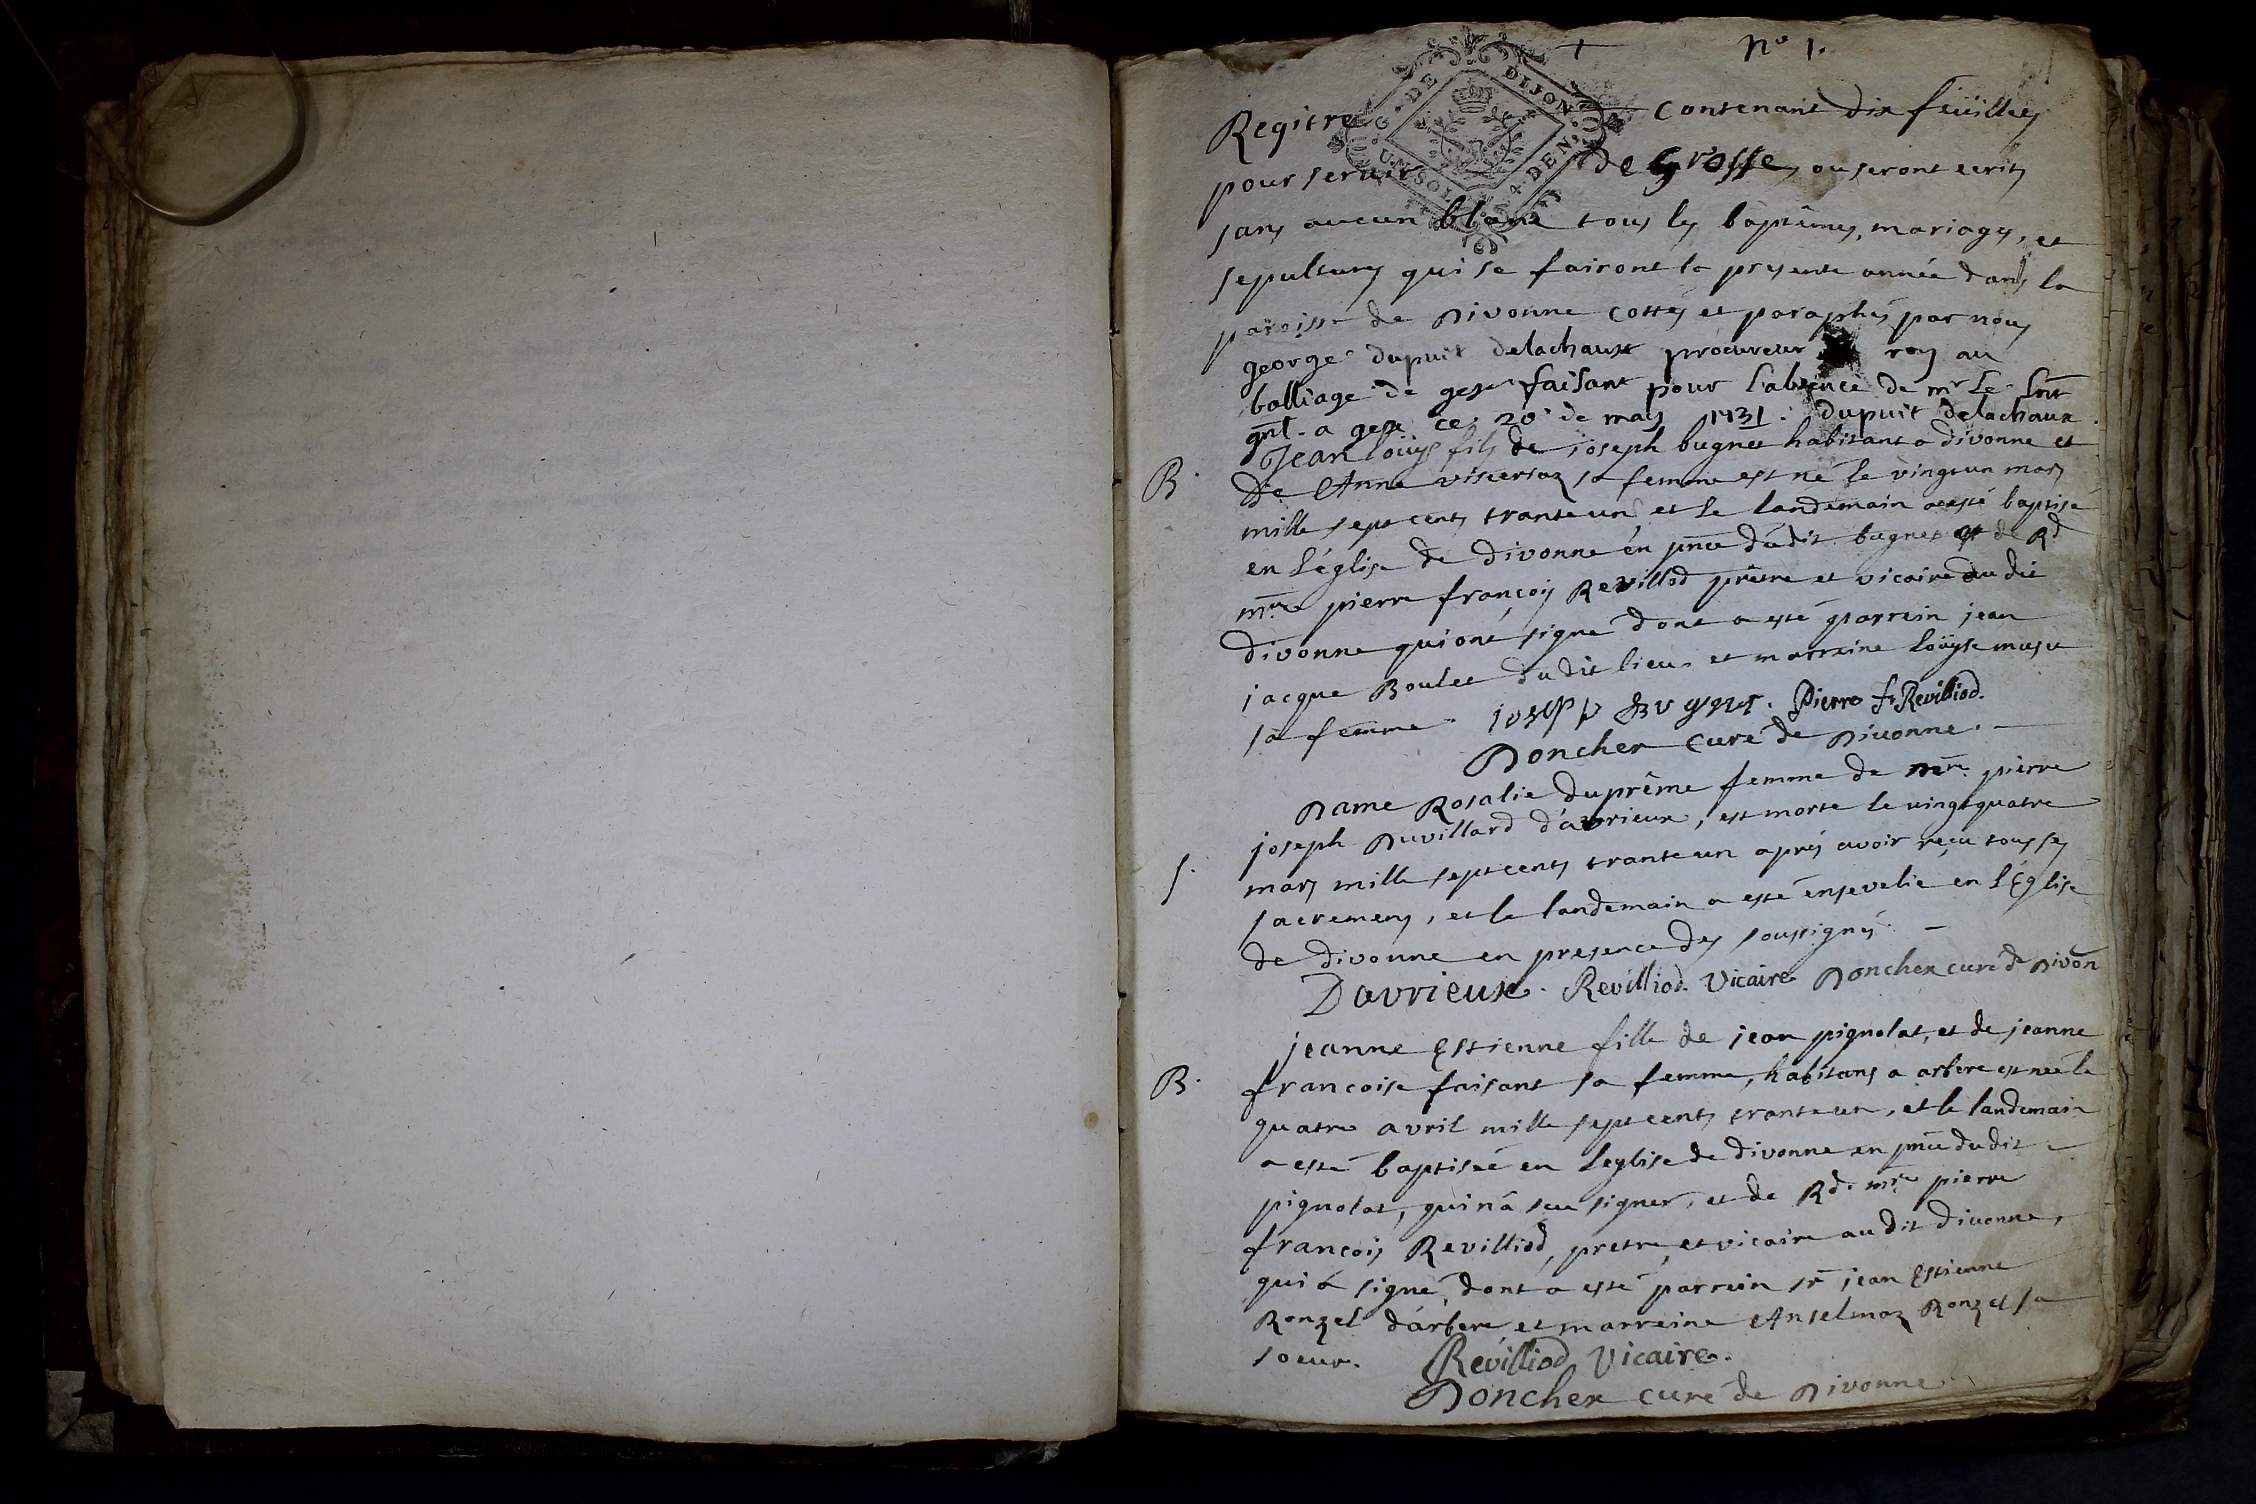 + No 1.
G. DE DIJON
UN SOL 4. DEN.
Regitre contenant dix feüilles
pour servir de Grosse, ou seront ecrits
sans aucun blanc tous les baptêmes, mariages, et
sepultures qui se fairont la presente année dans la
paroisse de Divonne cottés et paraphés par nous
george dupuit delachaux procureur roy au
balliage de gex faisant pour l'absence de mr le Lnt
gnl. a gex ce 20 de mars 1731. dupuit delachaux.
B. Jean loüys fils de joseph bugnet habitant a divonne et
de Anne sa femme est né le vingtun mars
mille sept cents trante un et le landemain a esté baptisé
en l'église de divonne en pnce dudit bugnet et de Rd
mre pierre françois Revillod prêtre et vicaire du dit
divonne qui ont signé dont a esté parrein jean
jacque Boulet du dit lieu et marreine loüyse
sa femme. joseph Bugnet. Pierre fr Revilliod.
Doncher curé de Divonne.
Dame Rosalie duprême femme de mre pierre
joseph Duvillard d'avrieux, est morte le vingtquatre
S. mars mille sept cents trante un aprés avoir reçu tous ses
sacremens, et le landemain a esté ensevelie en l'Eglise
de divonne en presence des soussignés.
Davrieux. Revilliod Vicaire Doncher curé de Divon
jeanne Estienne fille de jean pignolat, et de jeanne
B. francoise faisant sa femme, habitans a arbere est née le
quatre avril mille sept cents trante un, et le landemain
a esté baptiseé en l'eglise de divonne en pnce dudit
pignolat, qui n'a sçu signer, et de Rd. mre pierre
françois Revilliod, pretre, et vicaire au dit divonne,
qui a signé, dont a esté parrein sr jean Estienne
Ronzel d'arbere et marreine Anselmaz Ronzel sa
soeur. Revilliod Vicaire.
Doncher curé de Divonne